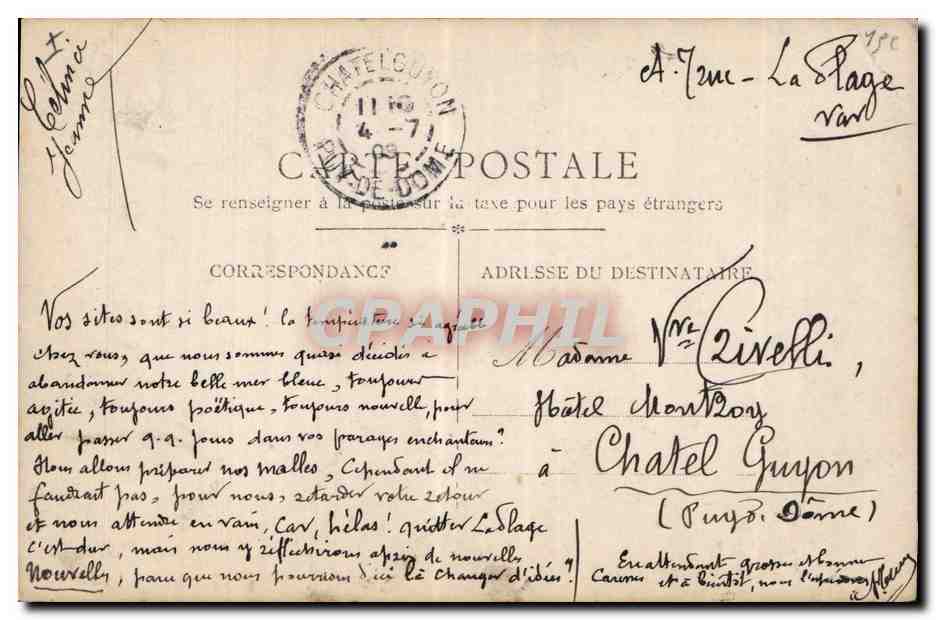 15€
A. 7bre - La Plage
Var
Jeanne
CHATELGUYON
11
4 - 7
09
PUY-DE-DOME
CARTE POSTALE
Se renseigner à la poste sur la taxe pour les pays étrangers
CORRESPONDANCE
ADRESSE DU DESTINATAIRE
CPAPHIL
Vos sites sont si beaux! la température si agréable
chez vous, que nous sommes quasi décidés à
abandonner notre belle mer bleue, toujours
agitée, toujours poëtique, toujours nouvelle, pour
aller passer q.q. jours dans vos parages enchanteurs?
Nous allons préparer nos malles, Cependant il ne
faudrait pas, pour nous, retarder votre retour
et nous attendre en vain, car, hélas! quitter La Plage
c'est dur, mais nous y réfléchirons après de nouvelles
Nouvelles, parce que nous pourrions d'ici là changer d'idées?
Madame Vve Crivelli,
Hôtel Montroy
à Chatel Guyon
(Puy d. Dôme)
En attendant grosses et bonnes
Caresses et à bientôt, nous l'espérons